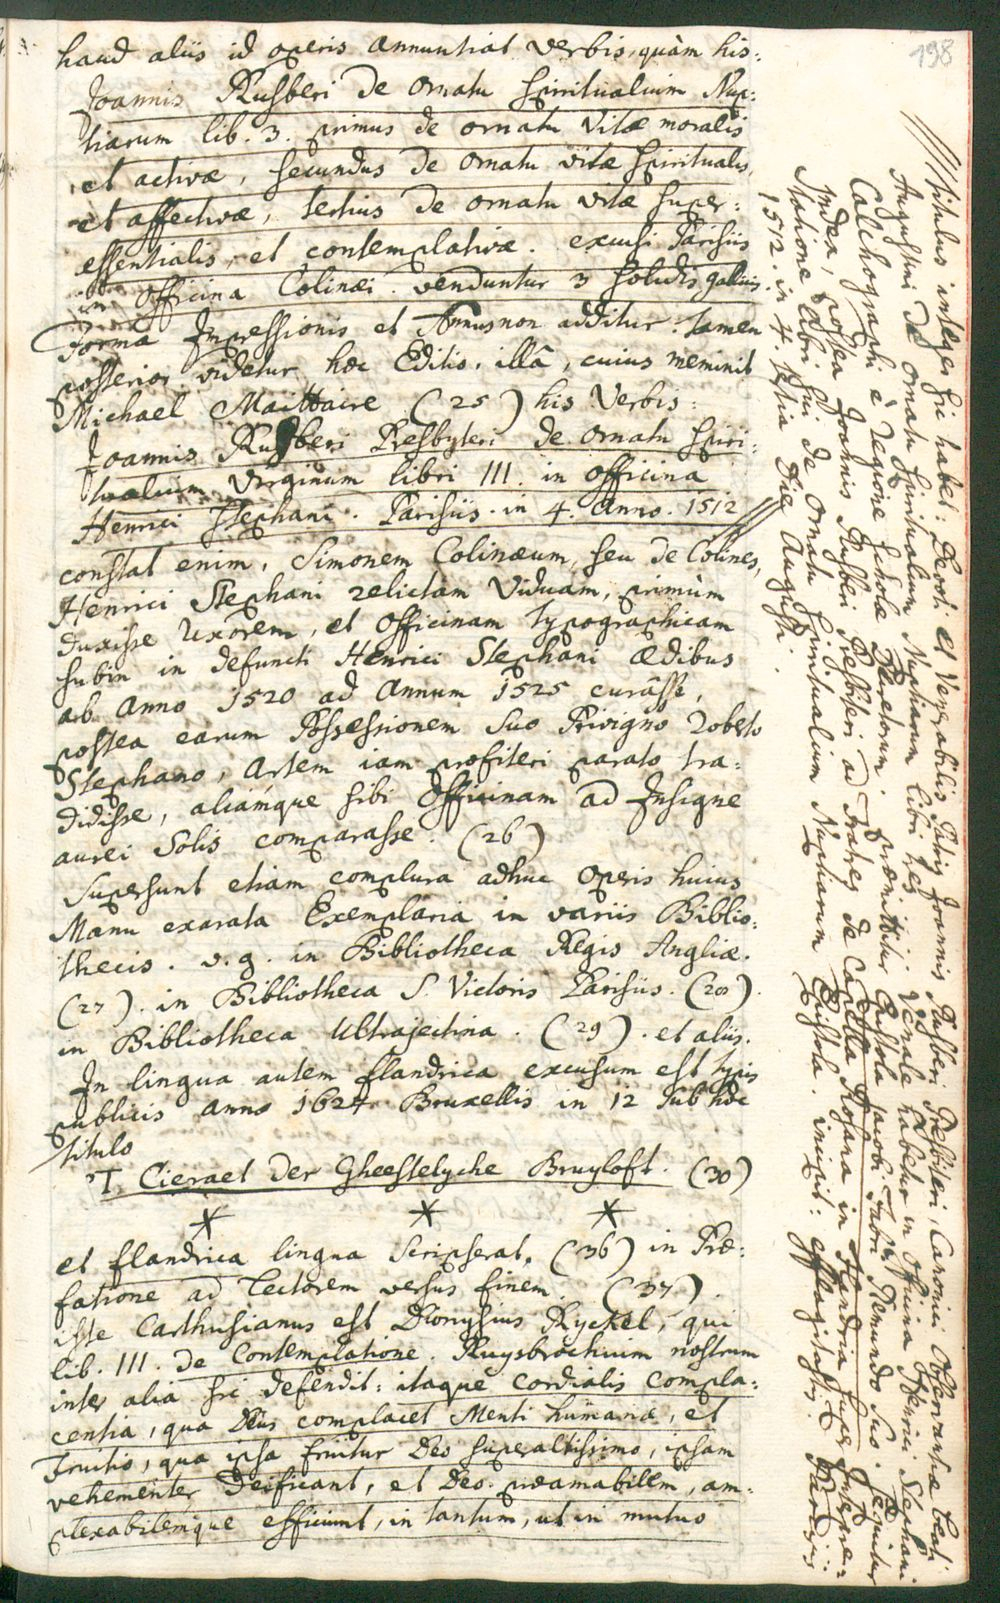 198
haud aliis id operis annuntiat verbis, quàm his:
Joannis Rusberi De Ornatu spiritualium Nup:
tiarum lib. 3. primus de ornatu vitæ moralis
et activæ, secundus de ornatu vitæ spiritualis,
et affectivæ, tertius de ornatu vitæ super:
essentialis, et contemplativæ. excusi Parisiis
in officina Colinæi. venduntur 3 solidis gallicis.
Forma Impressionis et Annus non additur. tamen
posterior videtur hæc Editio, illâ, cuius meminit
Michael Maittaire (25) his Verbis:
Joannis Rusberi Presbyteri de Ornatu spiri:
tualium Virginum libri III. in officina
Henrici Stephani. Parisiis. in 4. anno. 1512 //
constat enim, Simonem Colinæum, seu de Colines,
Henrici Stephani relictam Viduam, primùm
duxisse Uxorem, et Officinam typographicam
subin in defuncti Henrici Stephani Ædibus
ab Anno 1520 ad Annum 1525 curâsse,
postea earum Possessionem suo Privigno Roberto
Stephano, Artem iam profiteri parato tra:
didisse, aliamque sibi Officinam ad Insigne
aurei Solis comparasse. (26)
Supersunt etiam complura adhuc Operis huius
Manu exarata Exemplaria in variis Biblio:
thecis. v. g. in Bibliotheca Regis Angliæ.
(27). in Bibliotheca S. Victoris Parisiis. (28).
in Bibliotheca Ultrajectina. (29). et aliis.
In lingua autem flandrica excusum est typis
publicis anno 1624 Bruxellis in 12 sub hoc
titulo
'T Cieraet der Gheestelyche Bruyloft. (30)
* * *
et flandrica lingua scripserat. (36) in Præ:
fatione ad Lectorem versus finem. (37).
iste Carthusianus est Dionysius Ryckel, qui
lib. III. De Contemplatione. Ruysbrochium nostrum
inter alia sic defendit: itaque cordialis compla:
centia, qua Deus complacet Menti humanæ, et
Fruitio, qua ipsa fruitur Deo superaltissimo, ipsam
vehementer Deificant, et Deo præamabilem, am:
plexabilemque efficiunt, in tantum, ut in mutuo
// titulus integer sic habet: Devoti et Venerabilis Patris Joannis Rusberi Presbiteri, Canonici Observantiæ beati
Augustini de Ornatu spiritualium Nuptiarum libri tres. Venale habetur in officina Henrici Stephani
Calchographi è regione scholæ Decretorum. Præmittitur Epistola Jacobi Fabri Remundo suo. sequitur
Index, postea Joannis Rusberi Presbiteri ad Fratres de Capella Rosaria in Flandria super Interpre:
tatione libri sui de Ornatu spiritualium Nuptiarum Epistola. incipit: efflagitastis. Parisiis
1512. in 4. tertia Die Augusti.